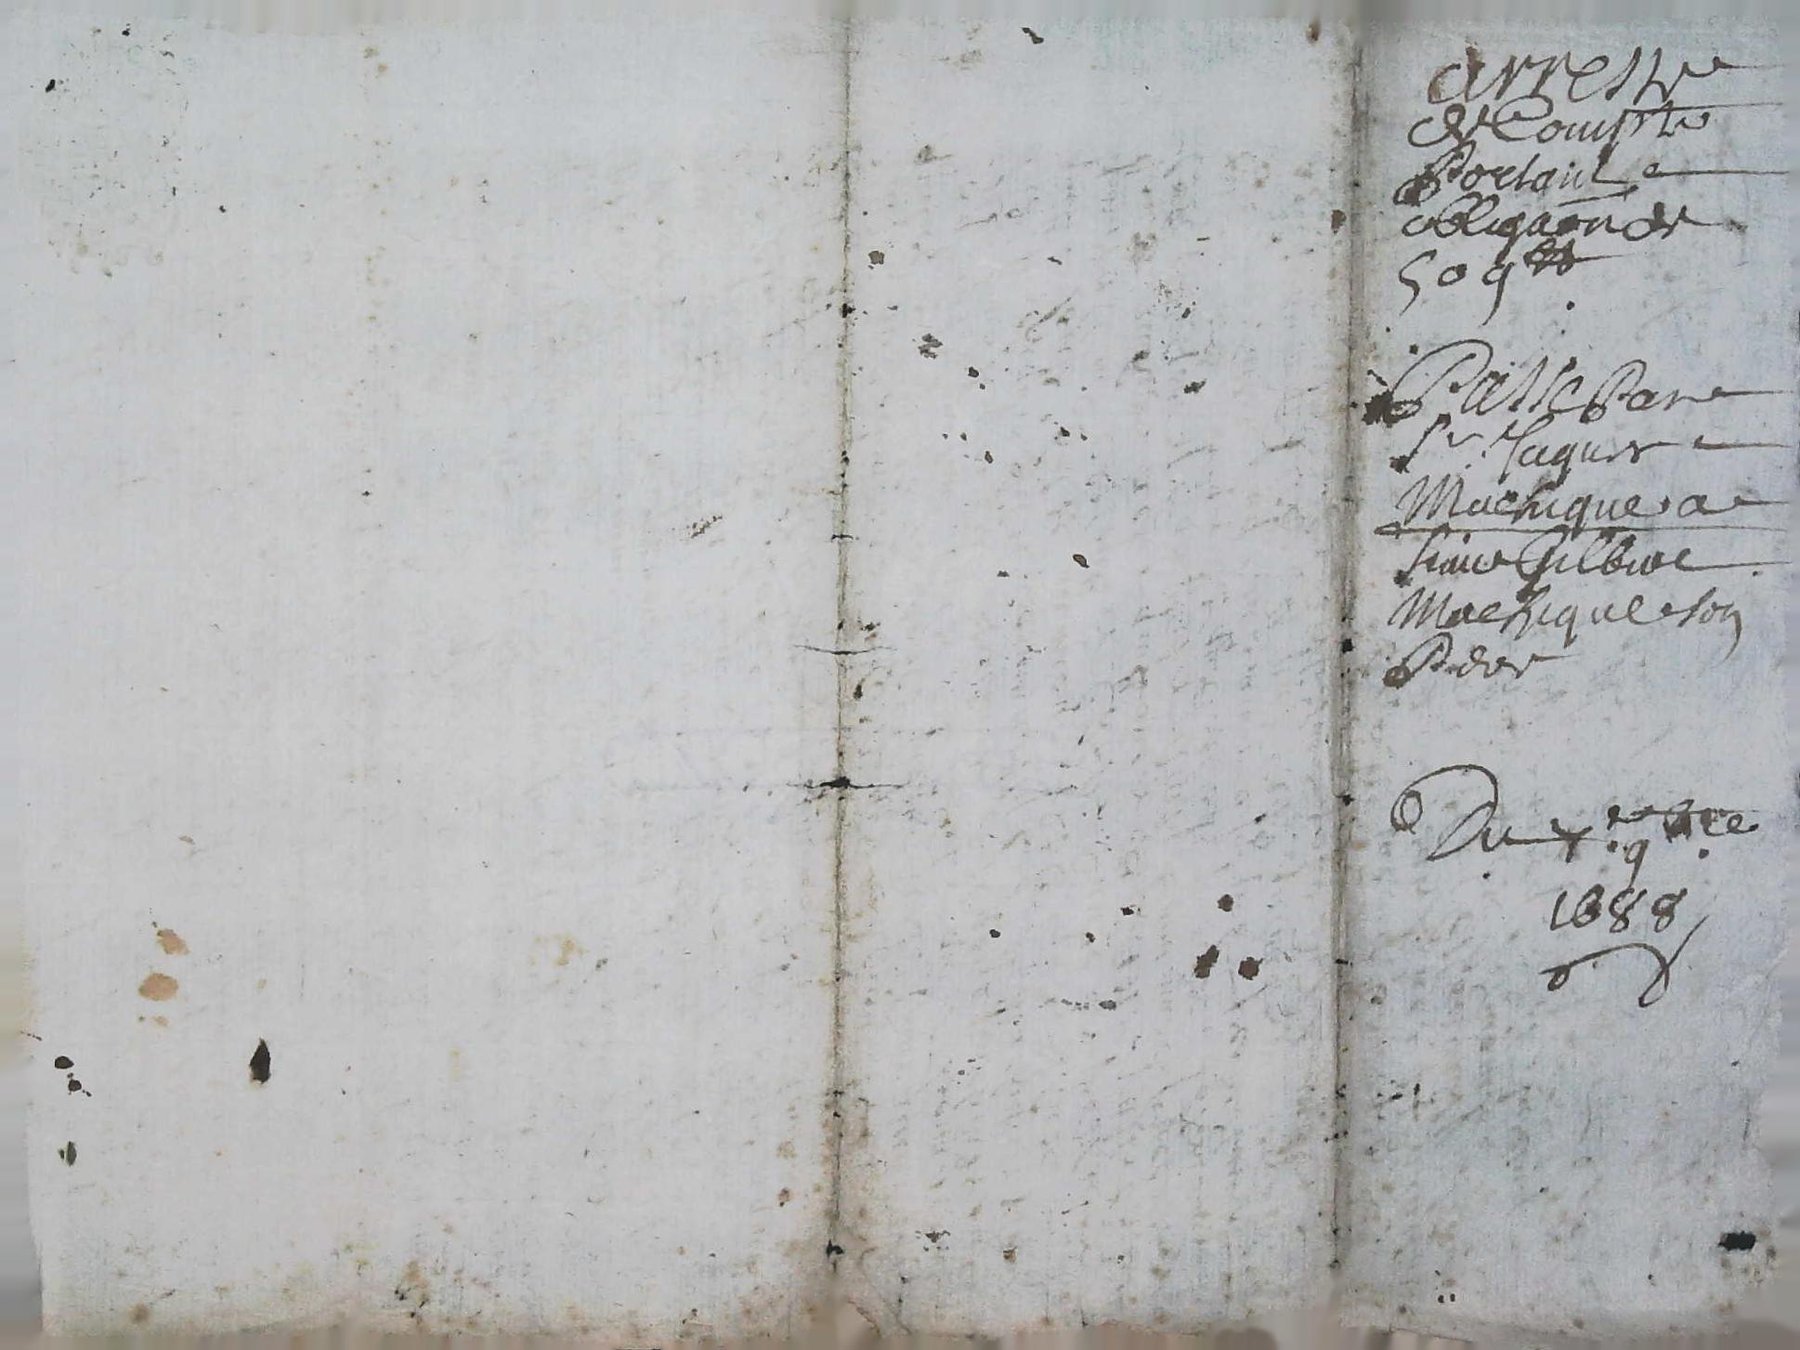 Arreste
de Compte
Portant
obligaōn de
509 ₶
Passe Par
Sr Jaques
Machique a
sieur Gilbert
Machique son
Du x 9bre
1688